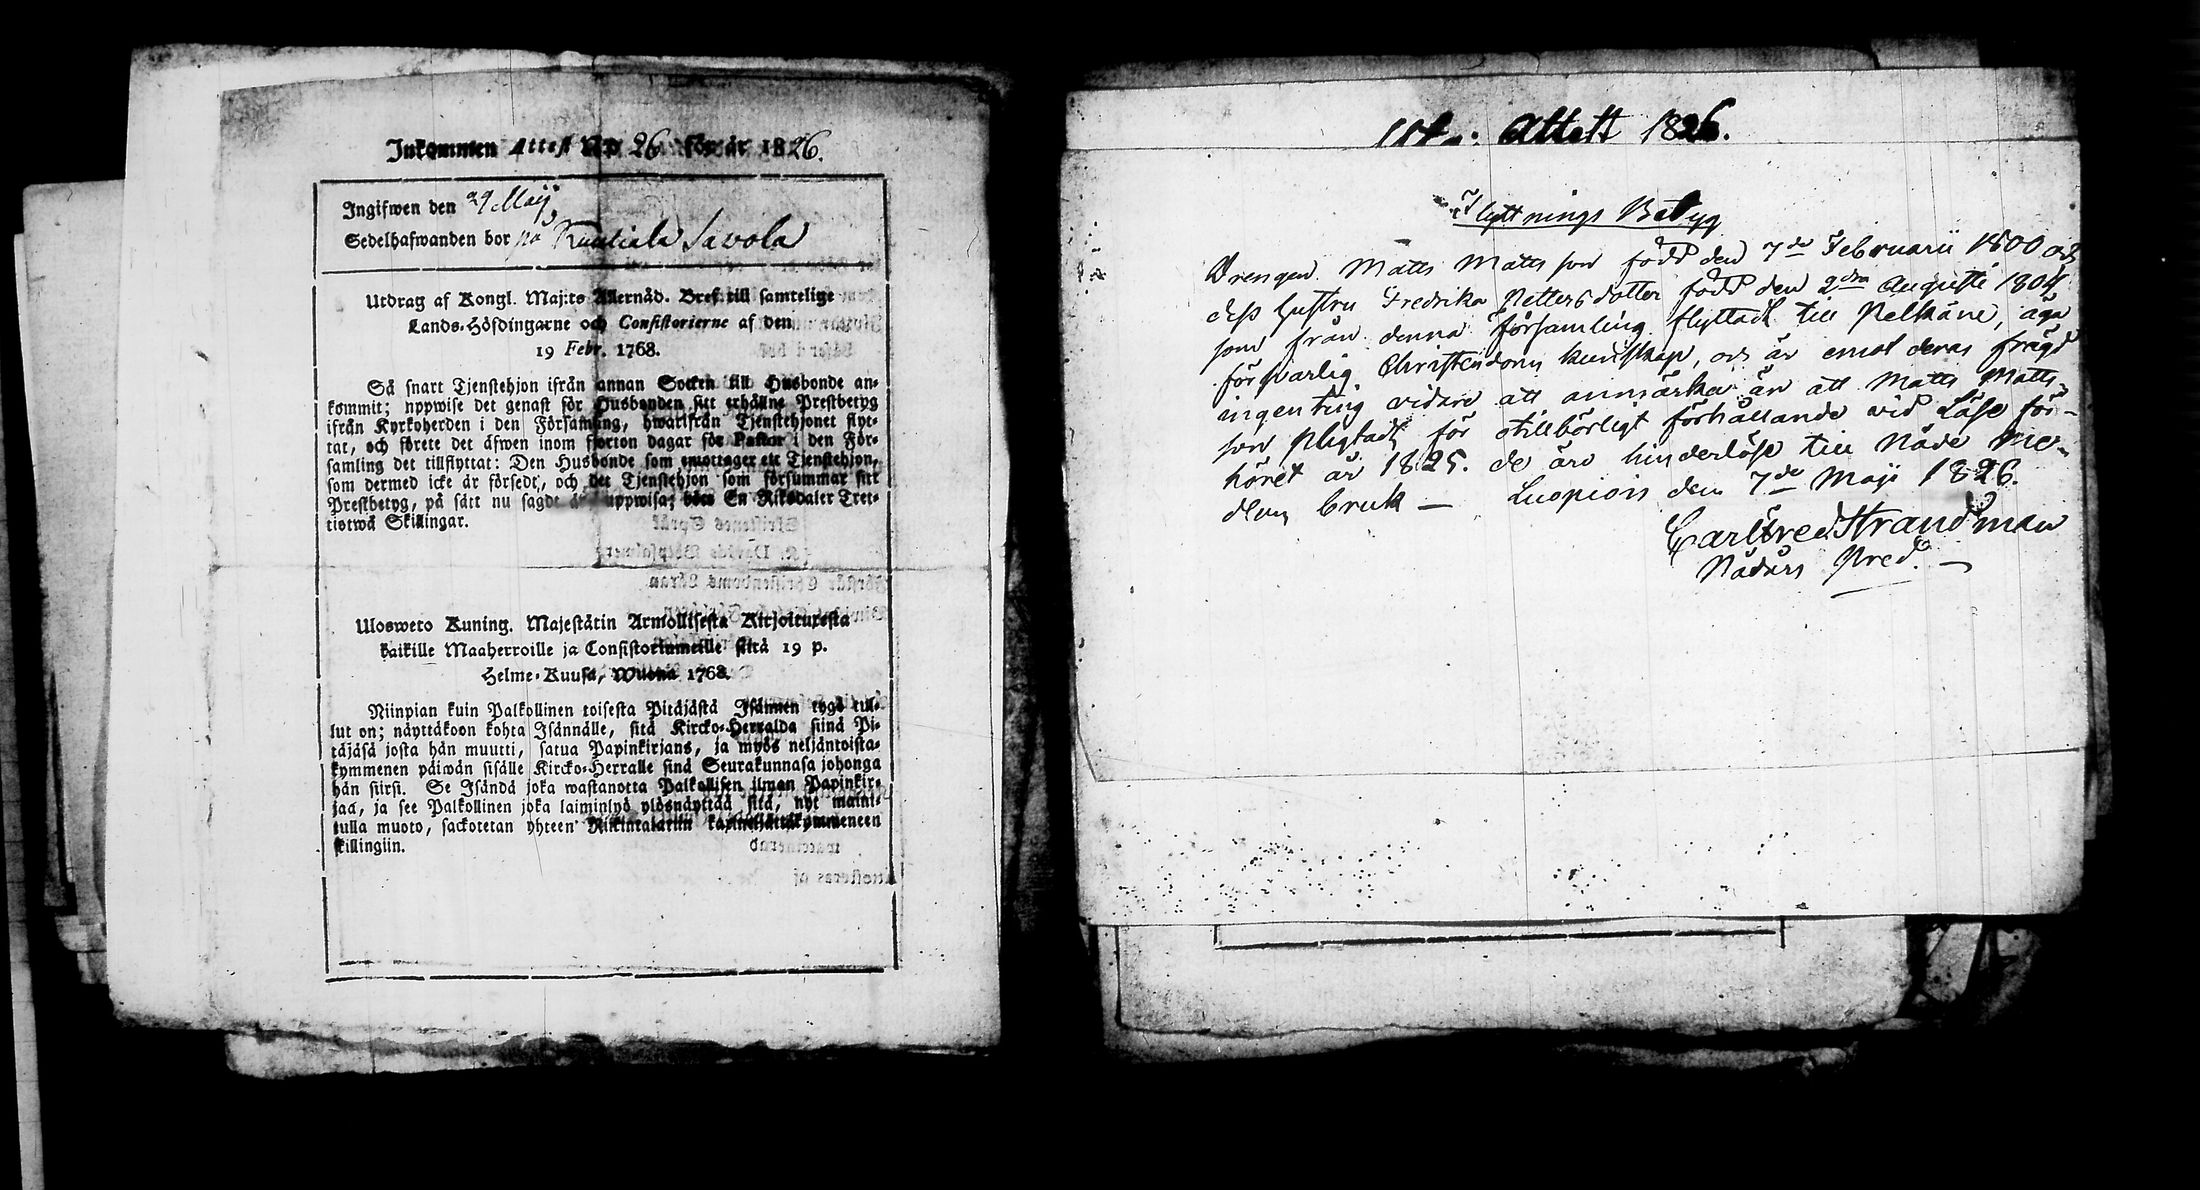 Inkommen Attest N:o 26 för år 1826.
Ingifwen den 29 Maij
Sedelhafwanden bor på Kuuliala Savola
Utdrag af Kongl. Maj:ts Allernåd. Bref till samtelige
Lands-Höfdingarne och Consistorierne af den
19 Febr. 1768.
Så snart Tjenstehjon ifrån annan Socken till Husbonde an-
kommit; uppwise det genast för Husbonden sitt erhållne Prestbetyg
ifrån Kyrkoherden i den Församling, hwarifrån Tjenstehjonet flyt-
tat, och förete det äfwen inom fjorton dagar för Pastor i den För-
samling det tillflyttat: Den Husbonde som emottager ett Tjenstehjon,
som dermed icke är försedt, och det Tjenstehjon som försummar sitt
Prestbetyg, på sätt nu sagdt är uppwisa; böte En Riksdaler Tret-
tiotwå Skillingar.
Ulosweto Kuning. Majestätin Armollisesta Kirjoituxesta
kaikille Maaherroille ja Consistoriumeille sitä 19 p.
Helme-Kuusa, Wuonna 1768.
Niinpian kuin Palkollinen toisesta Pitäjästä Isännen tygö tul-
lut on; näyttäkoon kohta Isännälle, sitä Kircko-Herralda siinä Pi-
täjäsä josta hän muutti, saatua Papinkirjans, ja myös neljäntoista-
kymmenen päiwän sisälle Kircko-Herralle sinä Seurakunnasa johonga
hän siirsi. Se Isändä joka wastanotta Palkollisen ilman Papinkir-
jaa, ja see Palkollinen joka laiminlyö ylösnäyttää sitä, nyt maini-
tulla muoto, sackotetan yhteen Riikintalariin kaxineljättäkymmeneen
skillingiin.
Attest 1826.
Flyttnings Betyg
Drengen Matts Mattsson född den 7de Februarii 1800 och
dess hustru Fredrika Pettersdotter född den 2dra Augusti 1804
som från denna församling flyttadt till Pelkäne, äga
försvarlig Christendoms kunskap, och är emot deras frägd
ingenting vidare att anmärka än att Matts Matts-
son pligtadt för otillbörligt förhållande vid Läse för-
höret år 1825. de äro hinderlöse till Nåde Me-
dlens bruk — Luopiois den 7de Maji 1826.
Carl Fred Strandman
Nådårs Pred. —